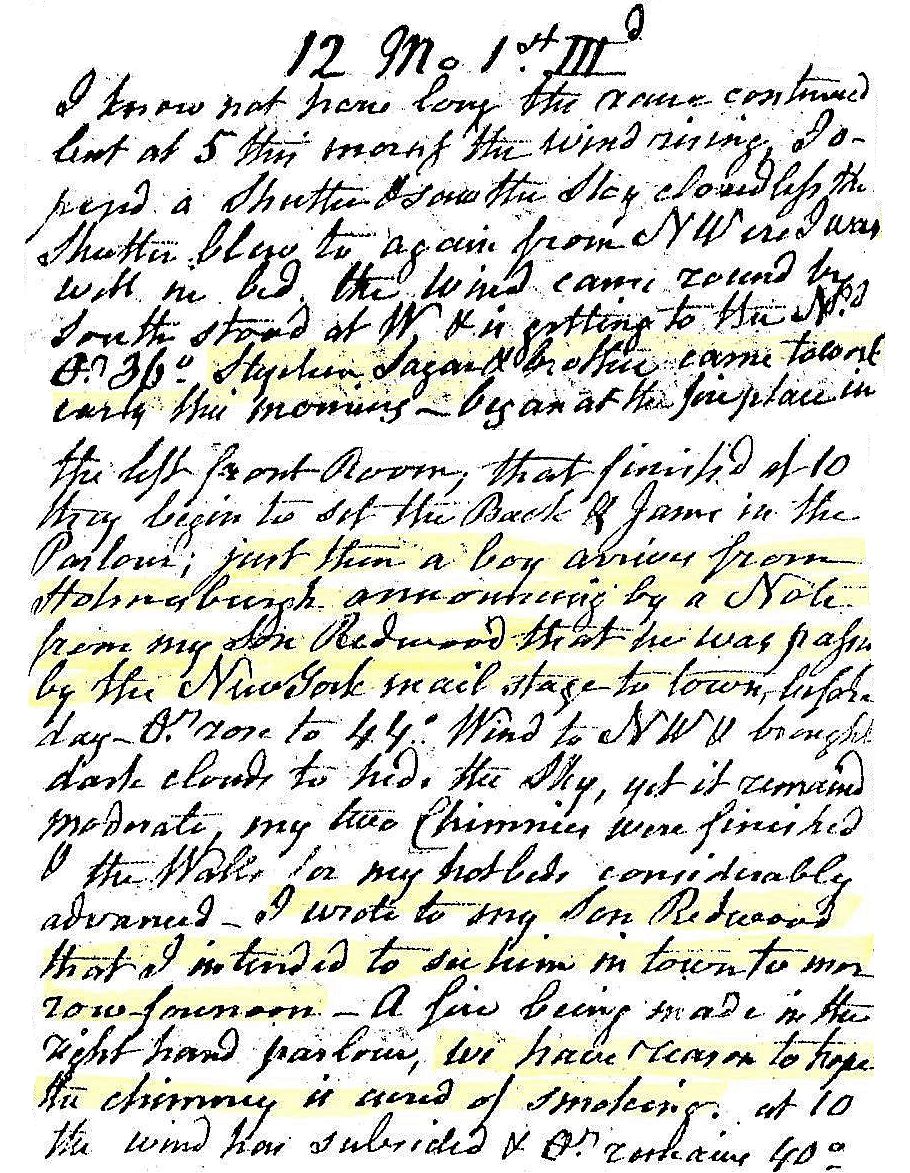 12 Mo 1st. IIId
I know not how long the rain continued
but at 5 this morng the wind rising, I o-
pend a Shutter & saw the Sky cloudless the
Shutter blew to again from NW ere I was
well in bed, the wind came round by
South stood at W & is getting to the Nd
36° Stephen Sagar & brother came to work
early this morning – began at the fire place in
the left front Room, that finishd at 10
they begin to set the Back & Jams in the
Parlour; just then a boy arrives from
Holmesburgh announcing by a Note
from my Son Redwood that he was passd
by the New York mail stage to town, before
day – rose to 44° Wind to NW & brought
dark clouds to hide the Sky, yet it remaind
moderate, my two Chimnies were finished
& the Walls for my hotbeds considerably
advanced – I wrote to my Son Redwood
that I intended to see him in town to mor
row forenoon – A fire being made in the
right hand parlour, we have reason to hope
the chimney is cured of smoking. at 10
the wind has subsided & remains 40°